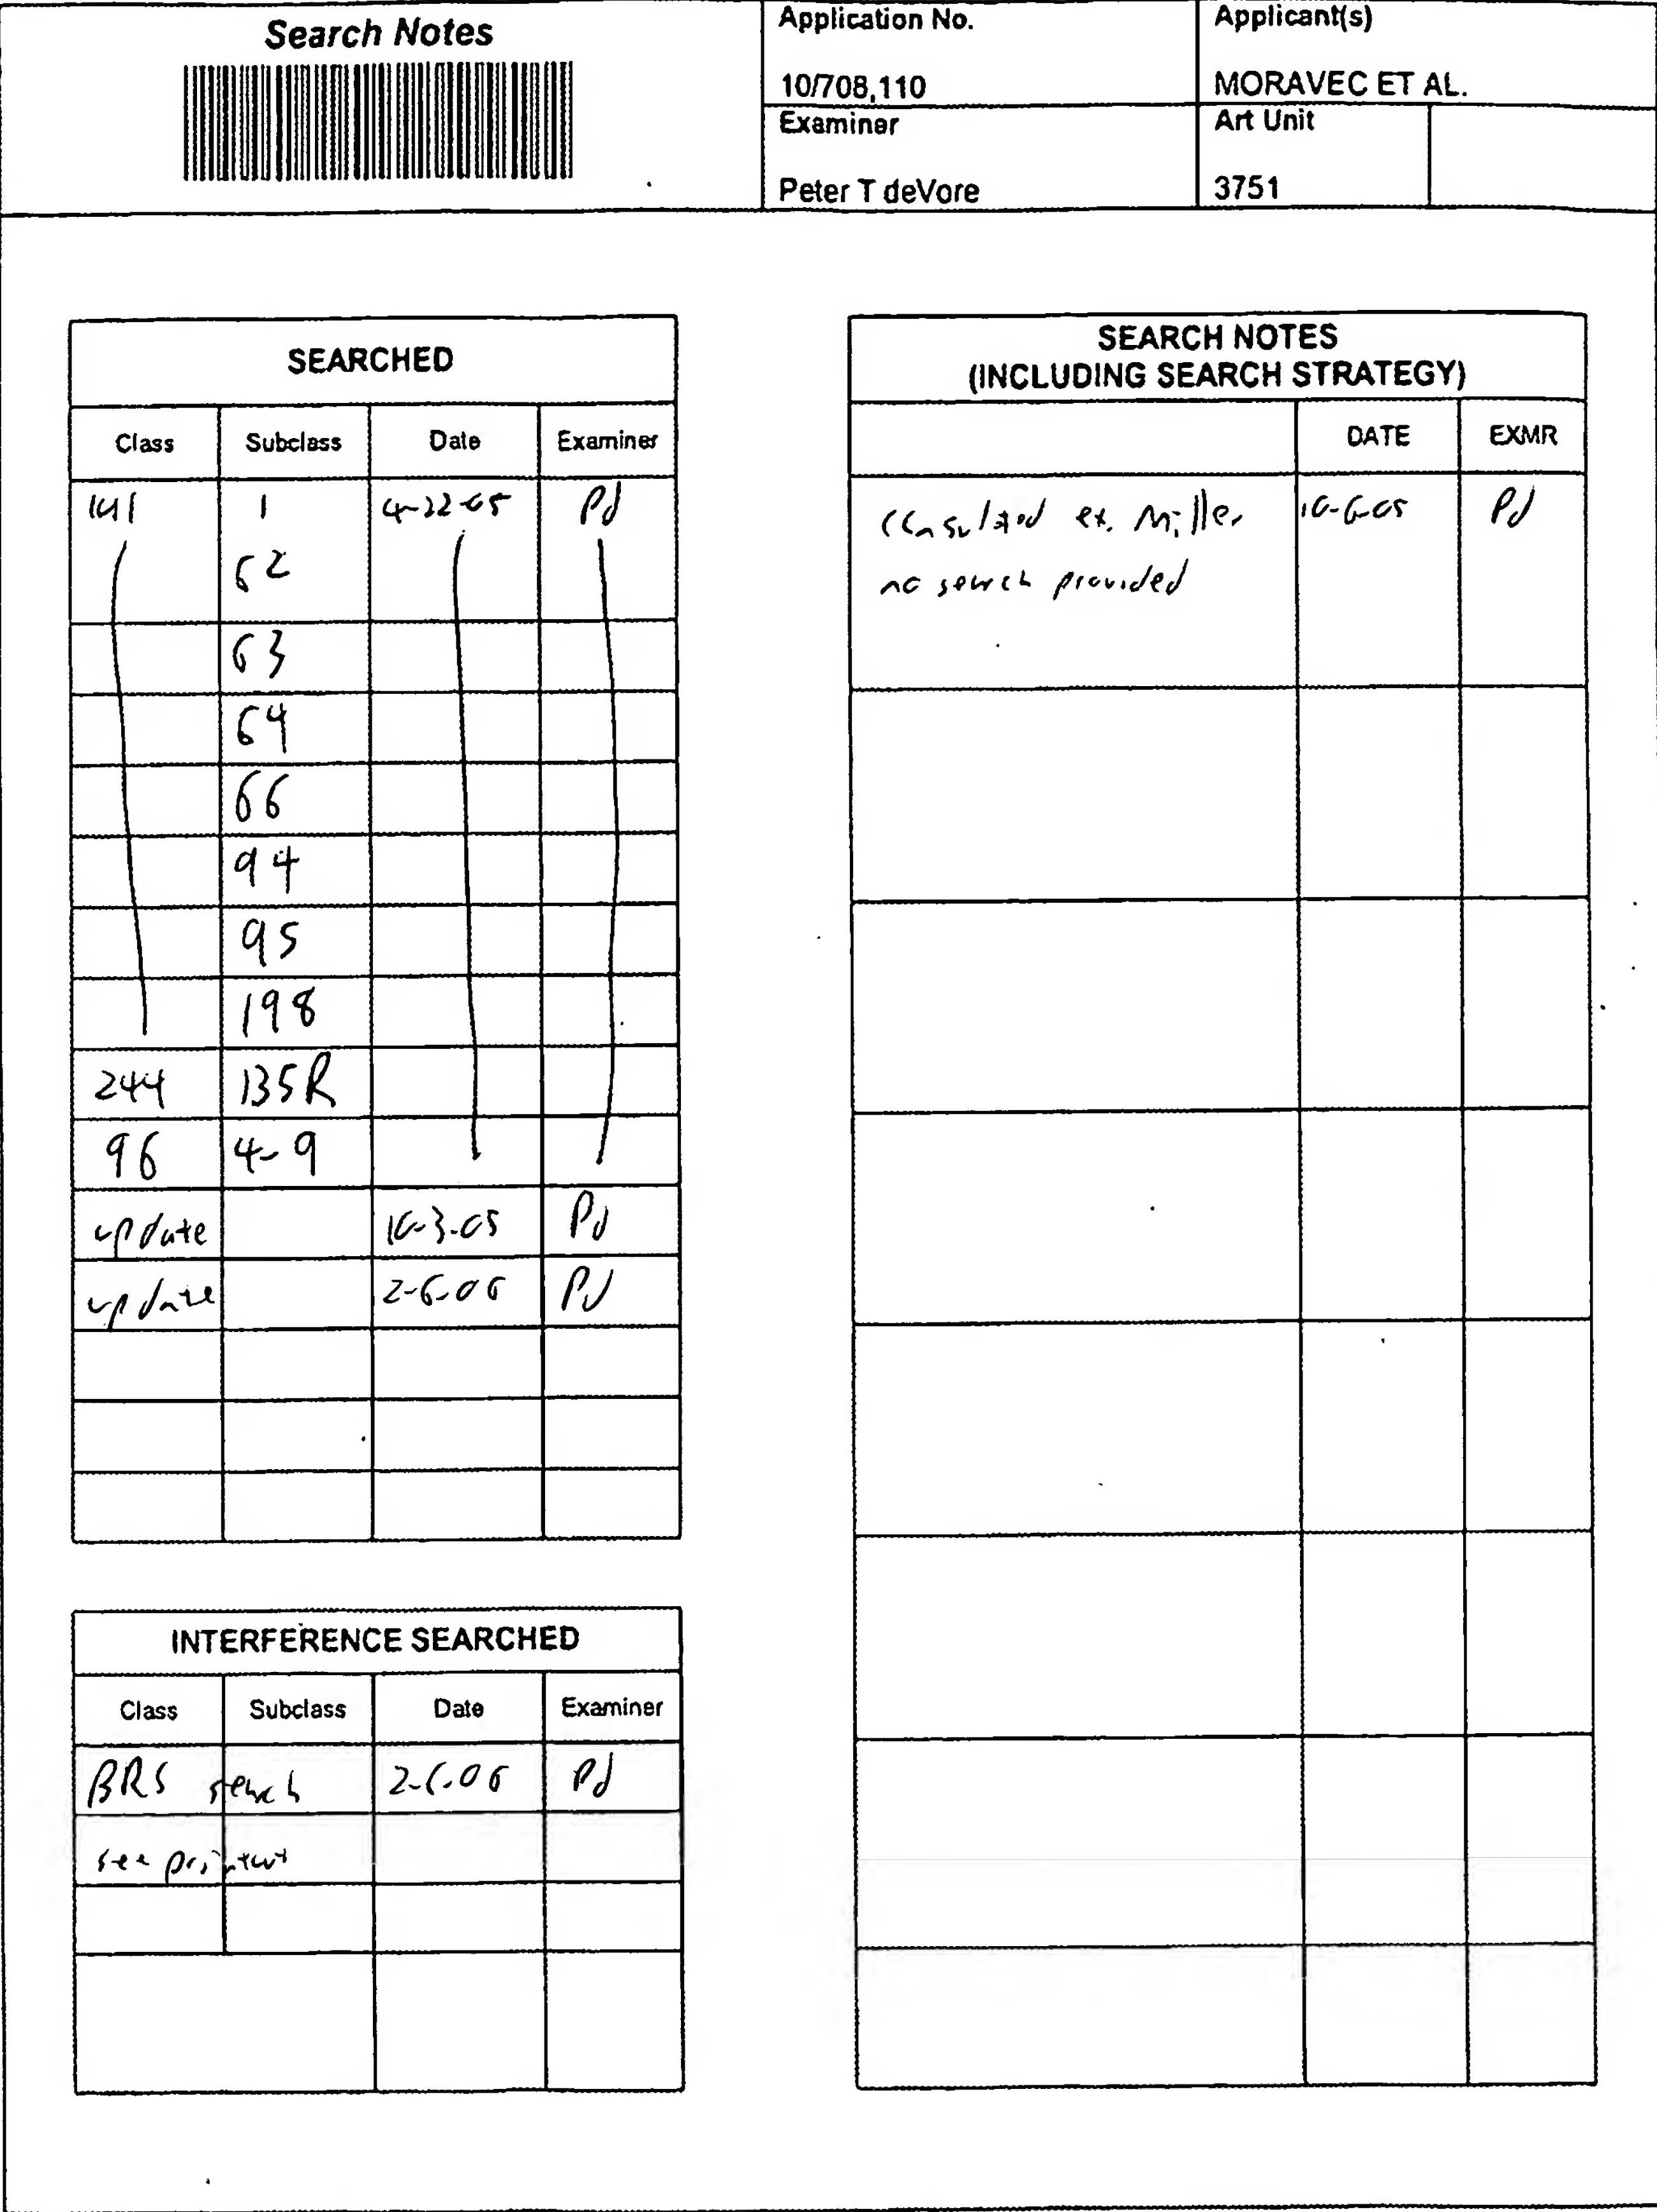 Search Notes
Application No.
10/708,110
Applicant(s)
MORAVEC ET AL.
Examiner
Peter T deVore
Art Unit
3751
SEARCHED
Class Subclass Date Examiner
141 1 4-22-05 Pd
62
63
64
66
94
95
198
244 135R
96 4-9
update 10-3-05 Pd
update 2-6-06 Pd
INTERFERENCE SEARCHED
Class Subclass Date Examiner
BRS search 2-6-06 Pd
see printout
SEARCH NOTES
(INCLUDING SEARCH STRATEGY)
DATE EXMR
Consulted ex. Miller 10-6-05 Pd
no search provided